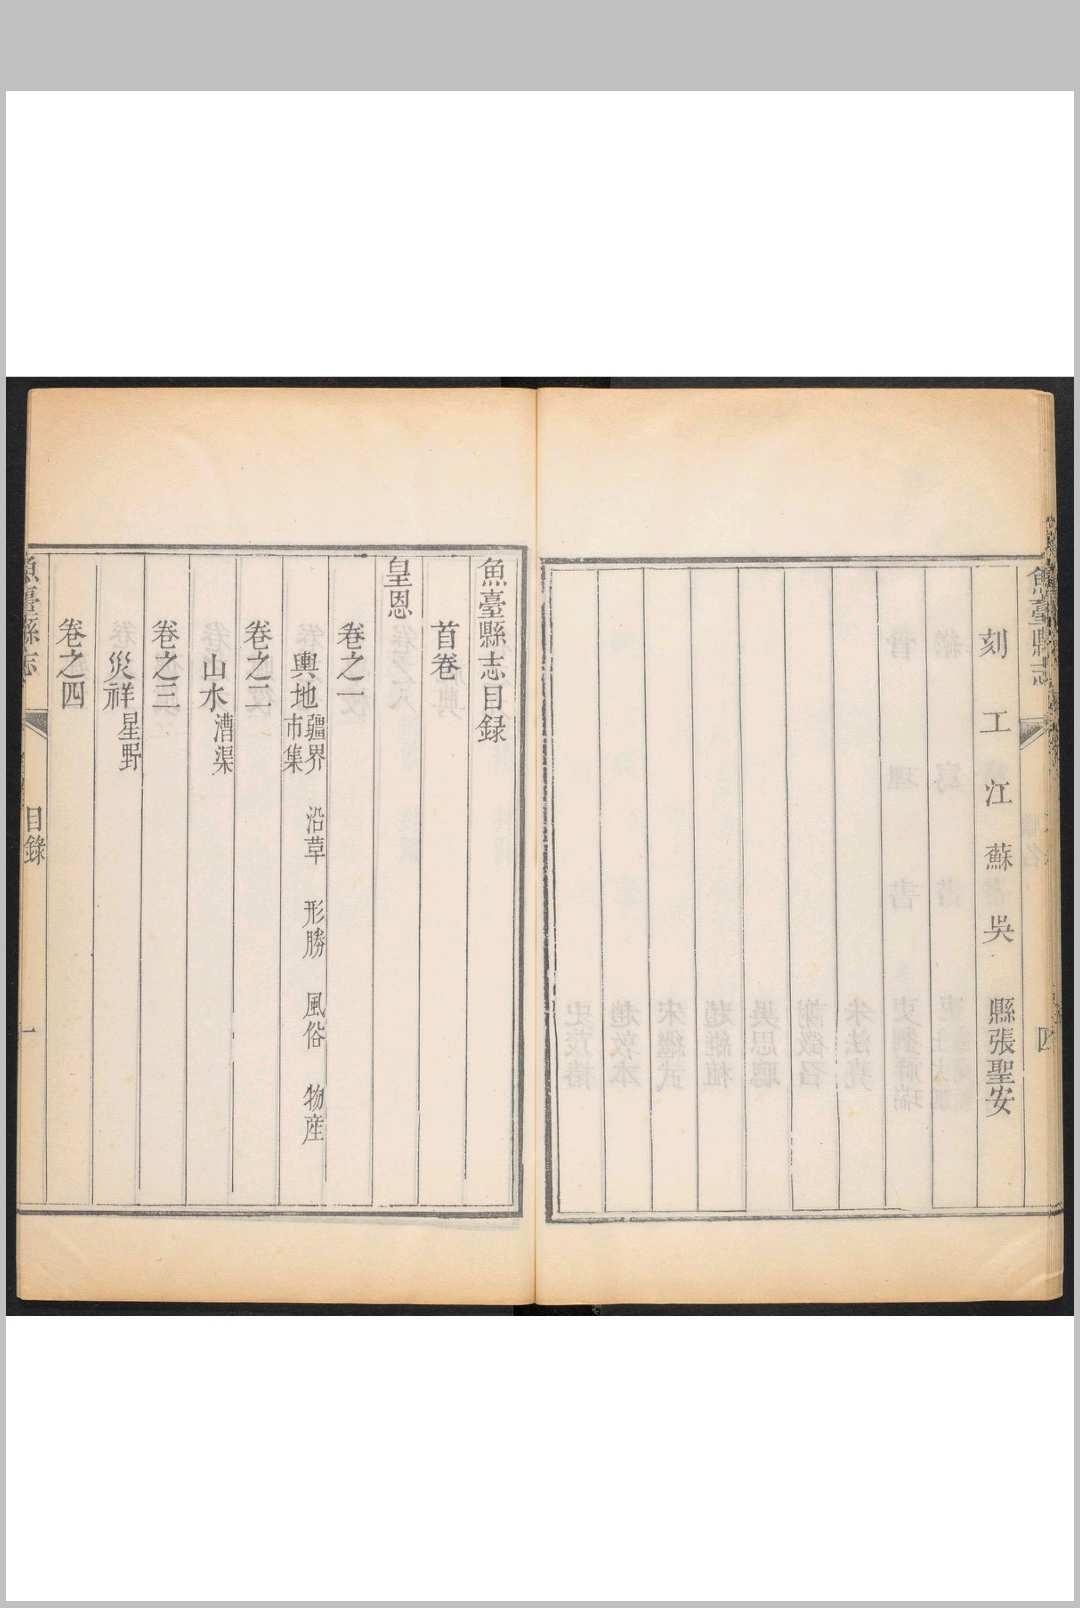 魚臺縣志
四
刻工江蘇吳縣張聖安
魚臺縣志目録
首卷
皇恩
卷之一
輿地疆界 沿革 形勝 風俗 物産
市集
卷之二
山水漕渠
卷之三
災祥星野
卷之四
魚臺縣志
目錄
一